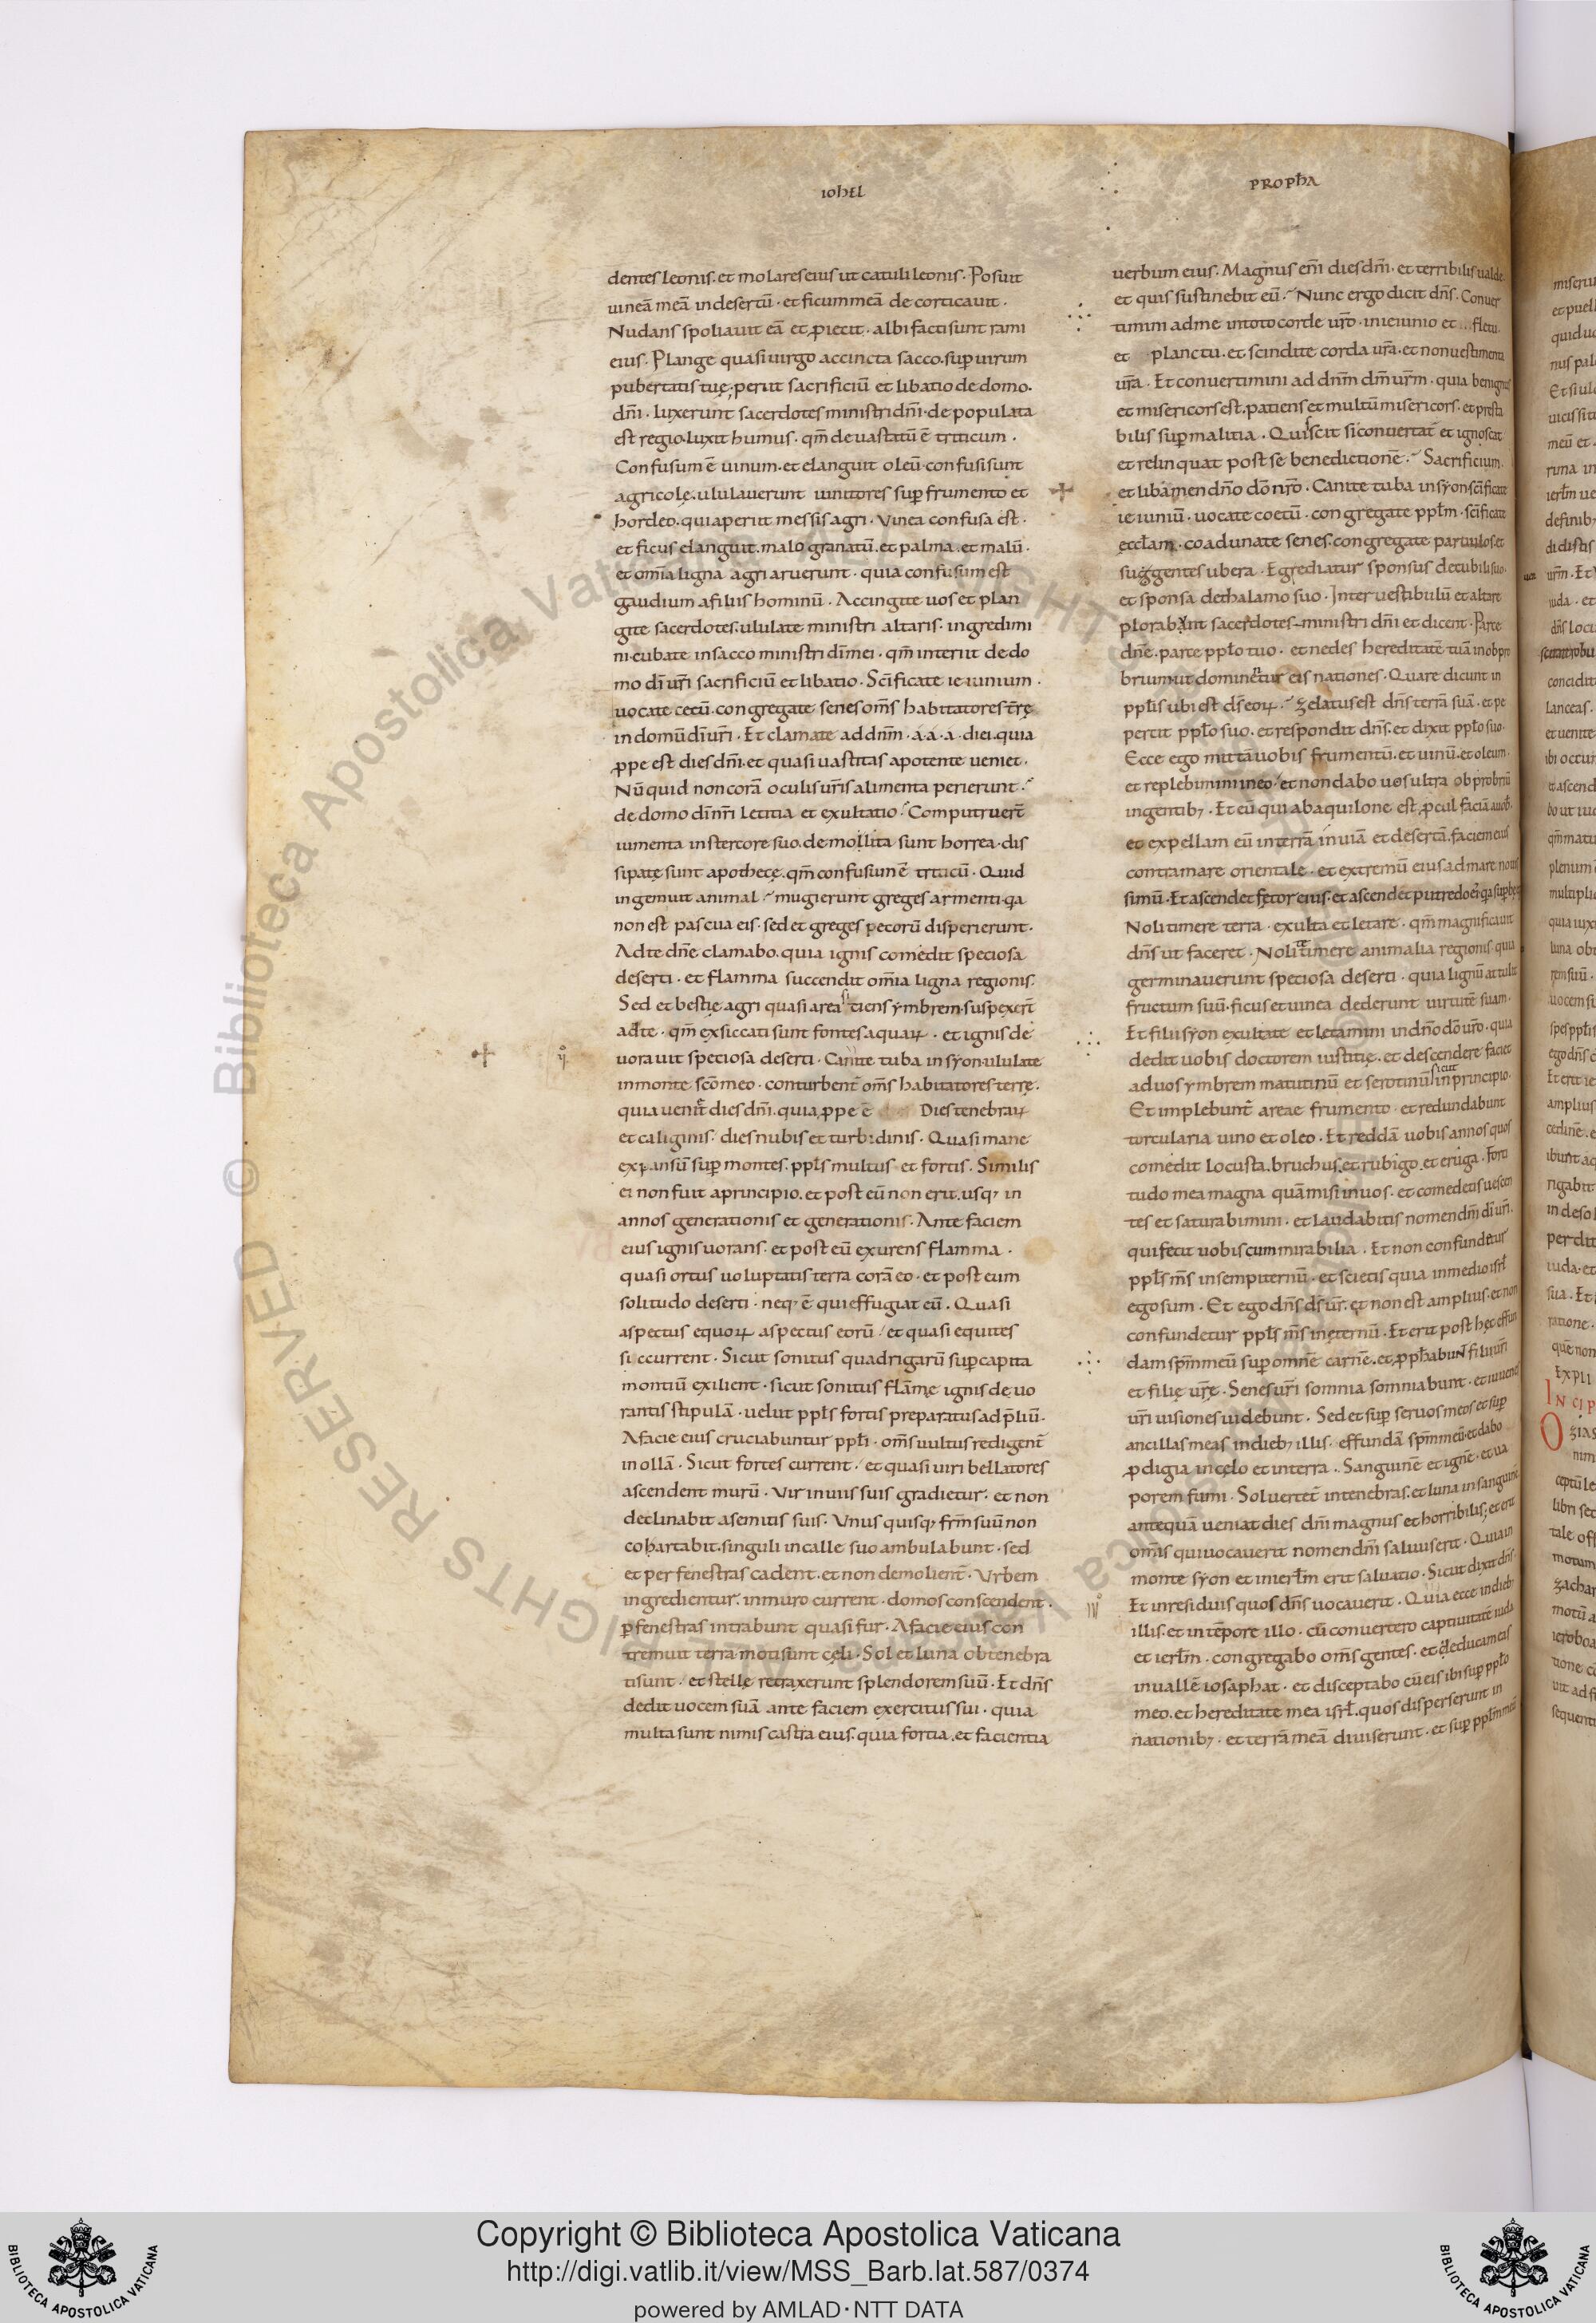 IOHEL
PROPH̅A
dentes leonis. et molares eius ut catuli leonis. Posuit
uineā meā indesertū. et ficummeā decorticauit.
Nudans spoliauit eā et ꝓiecit. albi facti sunt rami
eius. Plange quasi uirgo accincta sacco. suꝑ uirum
pubertatis tuę; periit sacrificiū et libatio de domo.
dn̄i. luxerunt sacerdotes ministri dn̄i. de populata
est regio. luxit humus. qm̄ deuastatū ē triticum.
Confusum ē uinum. et elanguit oleū. confusi sunt
agricolę. ululauerunt uinitores suꝑ frumento et
hordeo. quia periit messis agri. Vinea confusa est.
et ficus elanguit. malogranatū. et palma. et malū.
et om̄ia ligna agri aruerunt. quia confusum est
gaudium afiliis hominū. Accingite uos et plan
gite sacerdotes. ululate ministri altaris. ingredimi
ni. cubate insacco ministri dī mei. qm̄ interiit dedo
mo dī ur̄i sacrificiū et libatio. Sc̄ificate ieiunium.
uocate cetū. congregate senes om̄s habitatores tr̄rę
in domū dī ur̄i. Et clamate ad dnm̄. a. a. a. diei. quia
ꝓpe est dies dn̄i. et quasi uastitas apotente ueniet.
Nū quid non corā oculis ur̄is alimenta perierunt.
de domo dī nr̄i letitia et exultatio. Computruer̄t
iumenta instercore suo. demollita sunt horrea. dis
sipatę sunt apothecę. qm̄ confusum ē triticū. Quid
ingemuit animal mugierunt greges armenti. qa
non est pascua eis. sed et greges pecorū disperierunt.
Adte dn̄e clamabo. quia ignis comedit speciosa
deserti. et flamma succendit om̄ia ligna regionis.
Sed et bestię agri quasi area sitiens ymbrem. suspexer̄t
adte. qm̄ exsiccati sunt fontes aquaꝝ. et ignis de
uorauit speciosa deserti. Canite tuba in syon. ululate
inmonte sc̄o meo. conturbent̄ om̄s habitatores terrę.
quia uenit dies dn̄i. quia ꝓpe ē Dies tenebraꝝ
et caliginis. dies nubis et turbidinis. Quasi mane
expansū suꝑ montes. ppl̄s multus et fortis. Similis
ei non fuit aprincipio. et post eū non erit. usq; in
annos generationis et generationis. Ante faciem
eius ignis uorans. et post eū exurens flamma.
quasi ortus uoluptatis terra corā eo. et post eum
solitudo deserti. neq; ē qui effugiat eū. Quasi
aspectus equoꝝ aspectus eorū. et quasi equites
si ccurrent. Sicut sonitus quadrigarū suꝑ capita
montiū exilient. sicut sonitus flāmę ignis deuo
rantis stipulā. uelut ppl̄s fortis preparatus ad p̄liū.
Afacie eius cruciabuntur ppl̄i. om̄s uultus redigent̄
in ollā. Sicut fortes current. et quasi uiri bellatores
ascendent murū. Vir inuiis suis gradietur. et non
declinabit asemitis suis. Vnus quisq; frm̄ suū non
cohartabit. singuli incalle suo ambulabunt. sed
et per fenestras cadent. et non demolient̄. Vrbem
ingredientur. inmuro current. domos conscendent.
ꝑ fenestras intrabunt quasi fur. Afacie eius con
tremuit terra. moti sunt cęli. Sol et luna obtenebra
ti sunt. et stellę retraxerunt splendorem suū. Et dn̄s
dedit uocem suā ante faciem exercitus sui. quia
multa sunt nimis castra eius. quia fortia. et facientia
ij
uerbum eius. Magnus em̄ dies dn̄i. et terribilis ualde
et quis sustinebit eū. Nunc ergo dicit dn̄s. Conuer
timini adme intoto corde ur̄o. inieiunio et fletu.
et planctu. et scindite corda ur̄a. et non uestimenta
ur̄a. Et conuertimini ad dnm̄ dm̄ ur̄m. quia benignus
et misericors est. patiens et multū misericors. et presta
bilis suꝑ malitia. Quis scit si conuertat̄ et ignoscat
et relinquat post se benedictionē. Sacrificium.
et libamen dn̄o dō nr̄o. Canite tuba insyon sc̄ificate
ieiuniū. uocate coetū. congregate ppl̄m. sc̄ificate
ęccl̄am. coadunate senes. congregate paruulos. et
suggentes ubera. Egrediatur sponsus decubili suo.
et sponsa dethalamo suo. Inter uestibulū et altare
plorabunt sacerdotes ministri dn̄i et dicent. Parce
dn̄e. parce ppl̄o tuo. et nedes hereditatē tuā inobpro
brium. ut dominentur eis nationes. Quare dicunt in
ppl̄is ubi est dr̄s eoꝝ. Zelatus est dn̄s terrā suā. et pe
percit ppl̄o suo. et respondit dn̄s. et dixit ppl̄o suo.
Ecce ego mittā uobis frumentū. et uinū. et oleum.
et replebimini in eo. et non dabo uos ultra obprobriū
ingentib;. Et eū qui ab aquilone est. ꝓcul faciā auob̄.
et expellam eū interrā inuiā et desertā. faciem eius
contra mare orientale. et extremū eius ad mare nouis
simū. Et ascendet fętor eius. et ascendet putredo ei'. qa suꝑbę
Noli timere terra. exulta et letare. qm̄ magnificauit
dn̄s ut faceret. Nolite timere animalia regionis. quia
germinauerunt speciosa deserti. quia lignū attulit
fructum suū. ficus et uinea dederunt uirtutē suam.
Et filii syon exultate et letamini indn̄o dō ur̄o. quia
dedit uobis doctorem iustitię. et descendere faciet
ad uos ymbrem matutinū et serotinū sicut inprincipio.
Et implebunt̄ areae frumento. et redundabunt
torcularia uino et oleo. Et reddā uobis annos quos
comedit locusta. bruchus. et rubigo. et eruga. Forti
tudo mea magna quā misi in uos. et comedetis uescen
tes et saturabimini. et laudabitis nomen dm̄ dī uri.
qui fecit uobiscum mirabilia. Et non confundetur
ppl̄s m̄s insempiternū. et scietis quia inmedio isrl̄
ego sum. Et ego dn̄s ds̄ ur̄. et non est amplius. et non
confundetur ppl̄s m̄s inęternū. Et erit post hęc effun
dam spm̄ meū suꝑ omnē carnē. et ꝓph̄abunt filii ur̄i
et filię ur̄ę. Senes ur̄i somnia somniabunt. et iuuenes
ur̄i uisiones uidebunt. Sed et suꝑ seruos meos et suꝑ
ancillas meas indieb; illis. effundā spm̄ meū. et dabo
ꝓdigia incęlo et interra. Sanguinē et ignē. et ua
porem fumi. Sol uertet̄ intenebras. et luna insanguinē
antequā ueniat dies dn̄i magnus et horribilis; et erit
om̄is qui uocauerit nomen dm̄ saluus erit. Quia in
monte syon et inierl̄m erit saluatio. Sicut dixit dn̄s.
Et inresiduis quos dn̄s uocauerit. Quia ecce indieb;
illis. et intēpore illo. cū conuertero captiuitatē iuda
et ierl̄m. congregabo om̄s gentes. et deducam eas
inuallē iosaphat. et disceptabo cū eis ibi suꝑ ppl̄o
meo. et hereditate mea isrl̄. quos disperserunt in
nationib;. et terrā meā diuiserunt. et suꝑ ppl̄m meū
iij
EXPLI
IN CIP
© Biblioteca Apostolica Vaticana ALL RIGHTS RESERVED
Copyright © Biblioteca Apostolica Vaticana
http://digi.vatlib.it/view/MSS_Barb.lat.587/0374
powered by AMLAD·NTT DATA
BIBLIOTECA APOSTOLICA VATICANA
BIBLIOTECA APOSTOLICA VATICANA